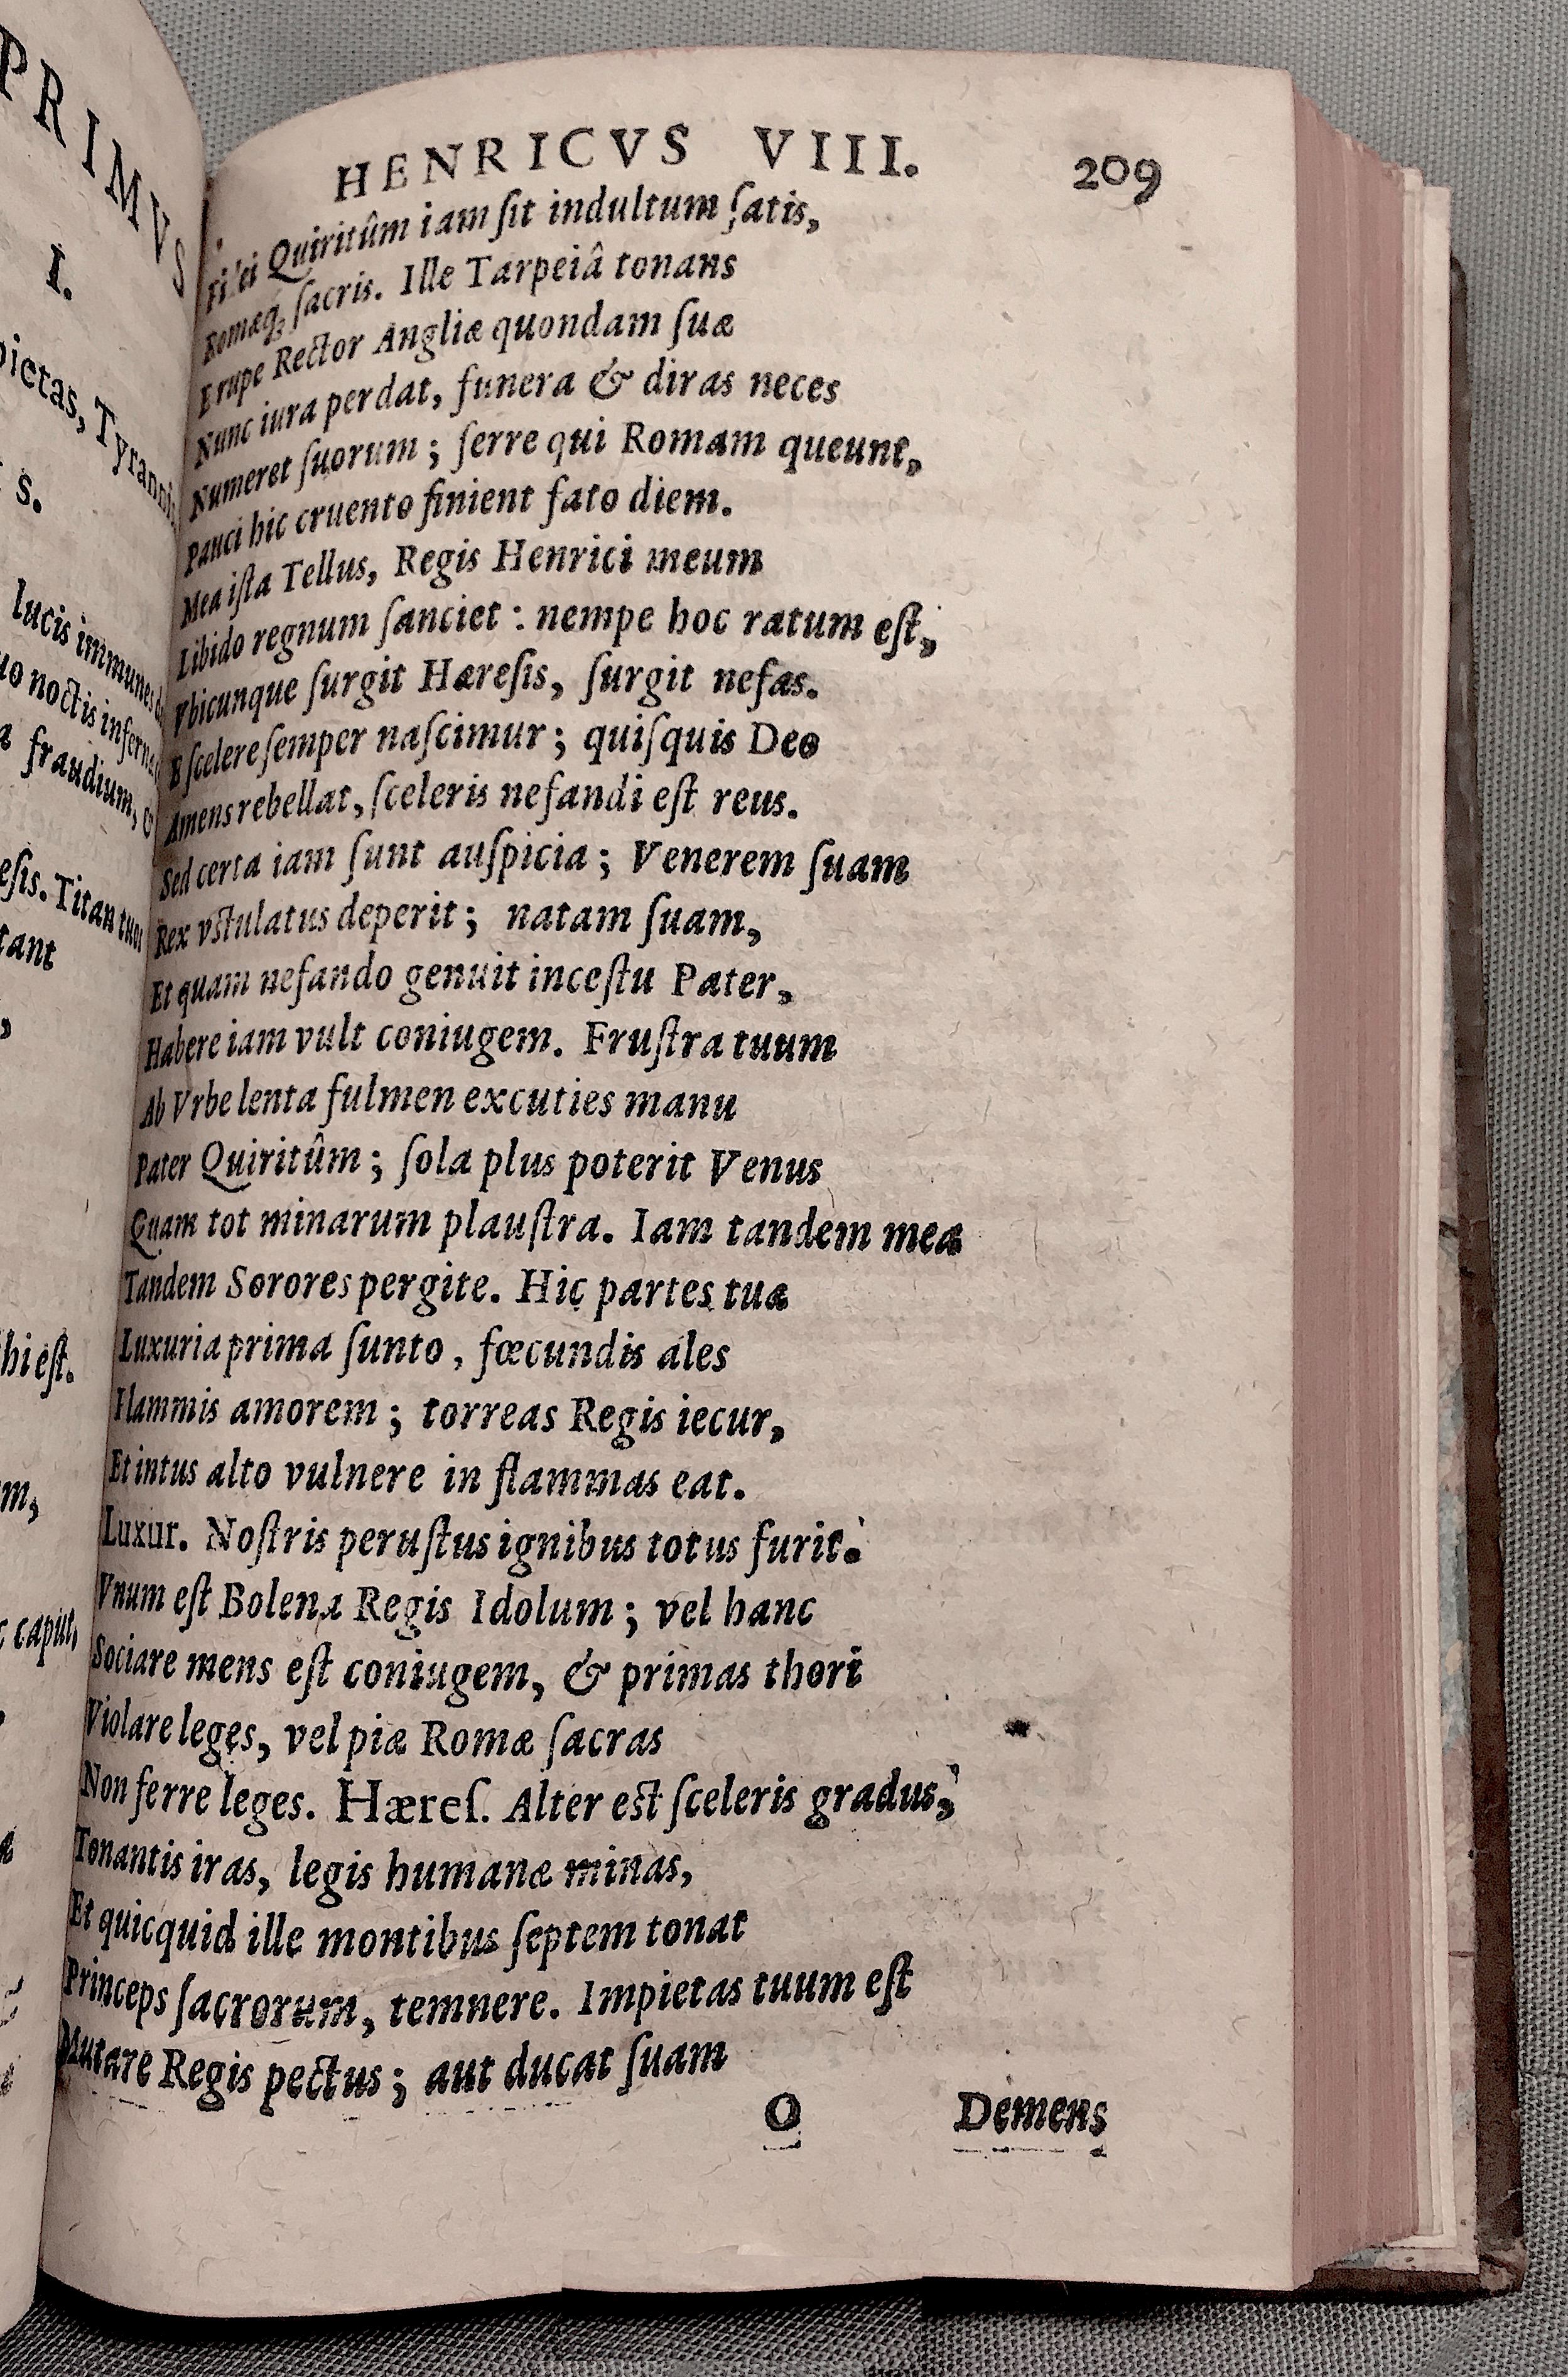 PRIMVS
I.
pietas, Tyranni
s.
lucis immunes
uo noctis inferna
a fraudium, &
esis. Titan tuos
tant
,
hi est.
m,
c caput,
HENRICVS VIII. 209
Fidei Quiritûm iam ſit indultum ſatis,
Romæq; ſacris. Ille Tarpeiâ tonans
E rupe Rector Angliæ quondam ſuæ
Nunc iura perdat, funera & diras neces
Numeret ſuorum; ferre qui Romam queunt,
Pauci hic cruento finient fato diem.
Mea iſta Tellus, Regis Henrici meum
Libido regnum ſanciet: nempe hoc ratum eſt,
Vbicunque ſurgit Hæreſis, ſurgit nefas.
E ſcelere ſemper naſcimur; quiſquis Deo
Amens rebellat, ſceleris nefandi eſt reus.
Sed certa iam ſunt auſpicia; Venerem ſuam
Rex vſtulatus deperit; natam ſuam,
Et quam nefando genuit inceſtu Pater,
Habere iam vult coniugem. Fruſtra tuum
Ab Vrbe lenta fulmen excuties manu
Pater Quiritûm; ſola plus poterit Venus
Quam tot minarum plauſtra. Iam tandem meæ
Tandem Sorores pergite. Hic partes tuæ
Luxuria prima ſunto, fœcundis ales
Flammis amorem; torreas Regis iecur,
Et intus alto vulnere in flammas eat.
Luxur. Noſtris peruſtus ignibus totus furit.
Vnum eſt Bolena Regis Idolum; vel hanc
Sociare mens eſt coniugem, & primas thori
Violare leges, vel piæ Romæ ſacras
Non ferre leges. Hæreſ. Alter eſt ſceleris gradus,
Tonantis iras, legis humanæ minas,
Et quicquid ille montibus ſeptem tonat
Princeps ſacrorum, temnere. Impietas tuum eſt
Mutare Regis pectus; aut ducat ſuam
O Demens